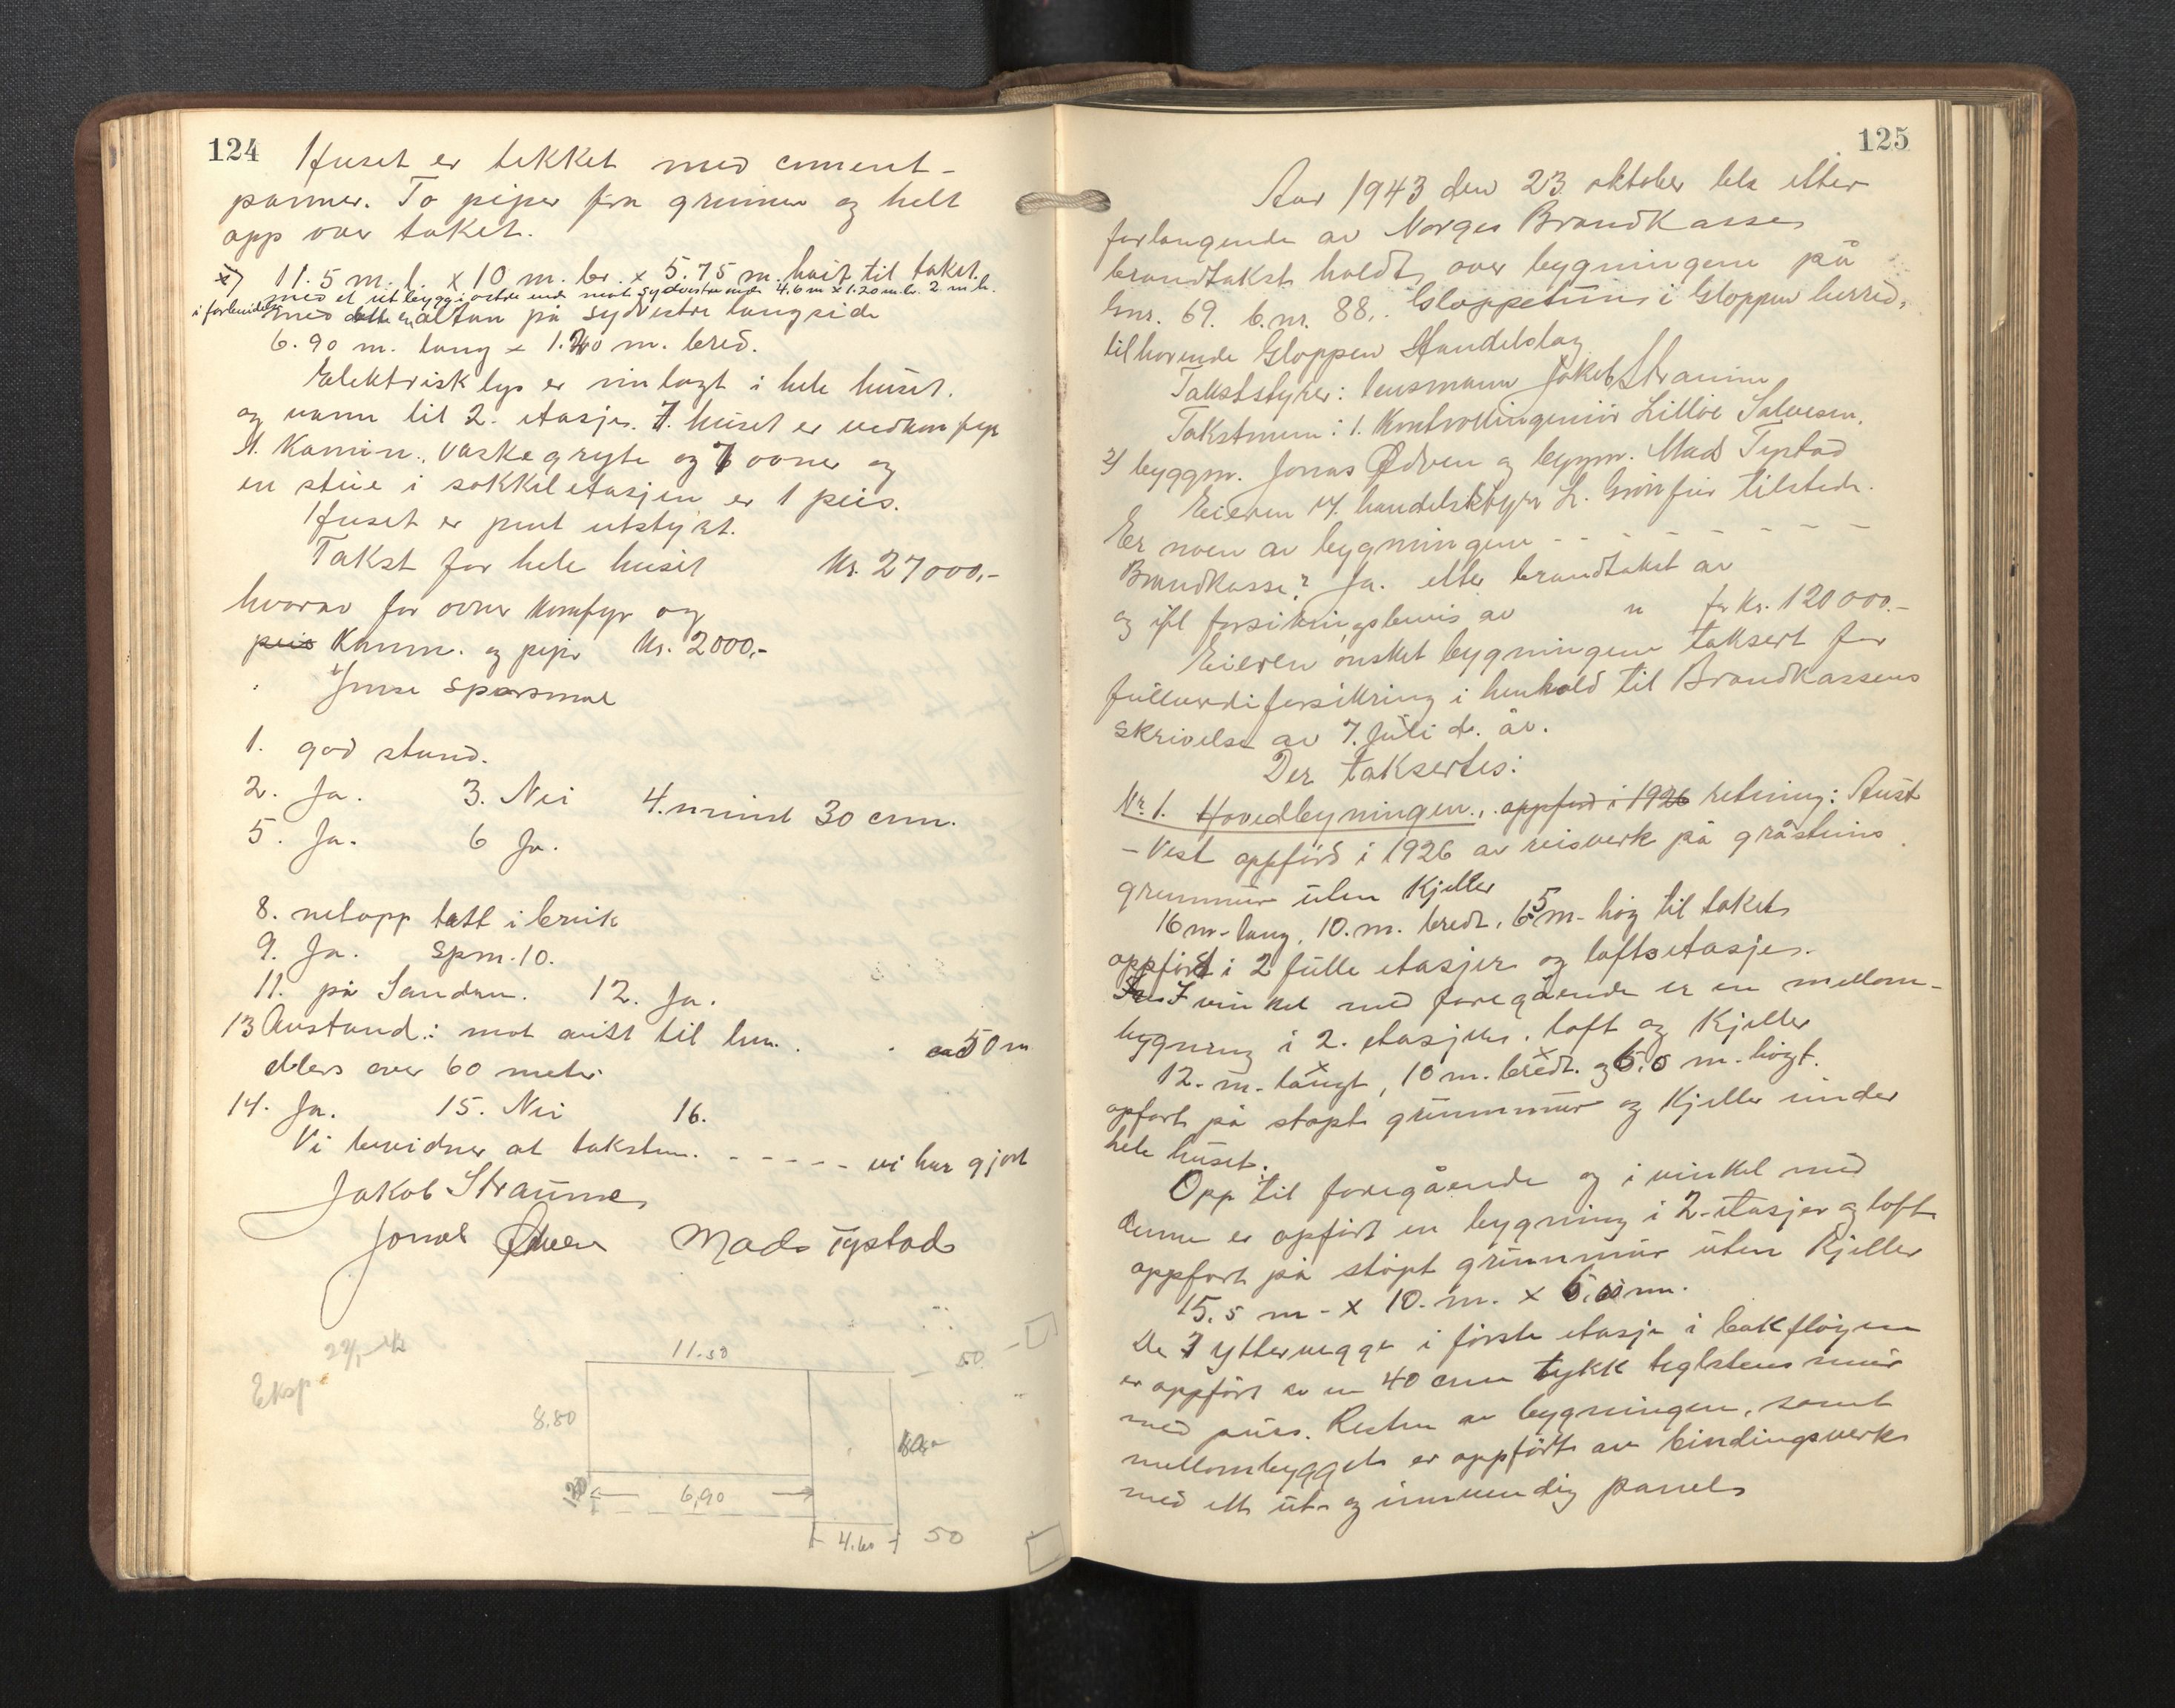 124
Huset er tekket med cement-
panner. To piper fra grunnen og helt
opp over taket.
x) 11.5 m. l. x 10 m. br. x 5.75 m. höit til taket.
med et utbygg i östre ende mot sydvestre ende 4.6 m x 1.20 m. br. 2 m. h.
i forbindelse med dette en altan på sydvestre langside
6.90 m. lang x 1.20 m. bred.
Elektrisk lys er innlagt i hele huset.
og vann til 2. etasje. I huset er vedkomfyr
1. Kamin., vaskegryte og 7 ovner og
en stue i sokkeletasjen er 1 peis.
Huset er pent utstyrt.
Takst for hele huset Kr. 27000,-
hvorav for ovner komfyr og
peis Kamin. og pipe Kr. 2000,-
Jmse spørsmål
1. god stand.
2. Ja. 3. Nei 4. minst 30 cm.
5. Ja. 6 Ja.
8. netopp tatt i bruk
9. Ja. Spm. 10.
11. på Sandane. 12. Ja.
13 Avstand: mot aust til lm. . 50 m
ellers over 60 meter
14. Ja. 15. Nei 16.
Vi bevidner at taksten. - - - - - vi har gjort
Jakob Straume
Jonas Ødven Mads Tystad
Eksp.
11.50
50
8.80
6,90
4.60
50
125
Aar 1943 den 23. oktober ble etter
forlangende av Norges Brandkasse
brandtakst holdt over bygningene på
Gnr. 69. b.nr. 88,. Gloppetun i Gloppen herred,
tilhørende Gloppen Handelslag
Takststyrer: lensmann Jakob Straume
Takstmenn: 1. Kontrollingeniör Lilloe Salvesen.
2/ byggm. Jonas Ødven og byggm. Mads Tystad
Eieren v/ handelsstyrer L. Grönfur tilstede.
Er noen av bygningene - - - - - - - -
Brandkasse? Ja. etter brandtakst av
og ifl forsikringsbevis av " for Kr. 120000.-
Eieren önsket bygningene taksert for
fullverdiforsikring i henhold til Brandkassens
skrivelse av 7. Juli d. år.
Der taksertes:
Nr. 1. Hovedbygningen., oppförd i 1926 retning: Aust
- Vest oppförd i 1926 av reisverk på gråsteins
grunnmur uten Kjeller
16 m. lang, 10. m. bredt, 6.5 m. höy til taket
oppfört i 2 fulle etasjer og loftsetasje.
I vinkel med foregående er en mellom-
bygning i 2. etasjer, loft og Kjeller
12. m. langt, 10 m. bredt. og 6.0 m. högt.
opfört på stöpt grunnmur og Kjeller under
hele huset.
Opp til foregående og i vinkel med
denne er opfört en bygning i 2-etasjer og loft
oppfört på stöpt grunnmur uten Kjeller
15.5 m - x 10. m. x 6.00 m.
De 3 yttervegge i förste etasje i bakflöyen
er oppfört av en 40 cm tykk teglstensmur
med puss. Resten av bygningen, samt
mellombygget er oppfört av bindingsverk
med ett ut- og innvendig panel